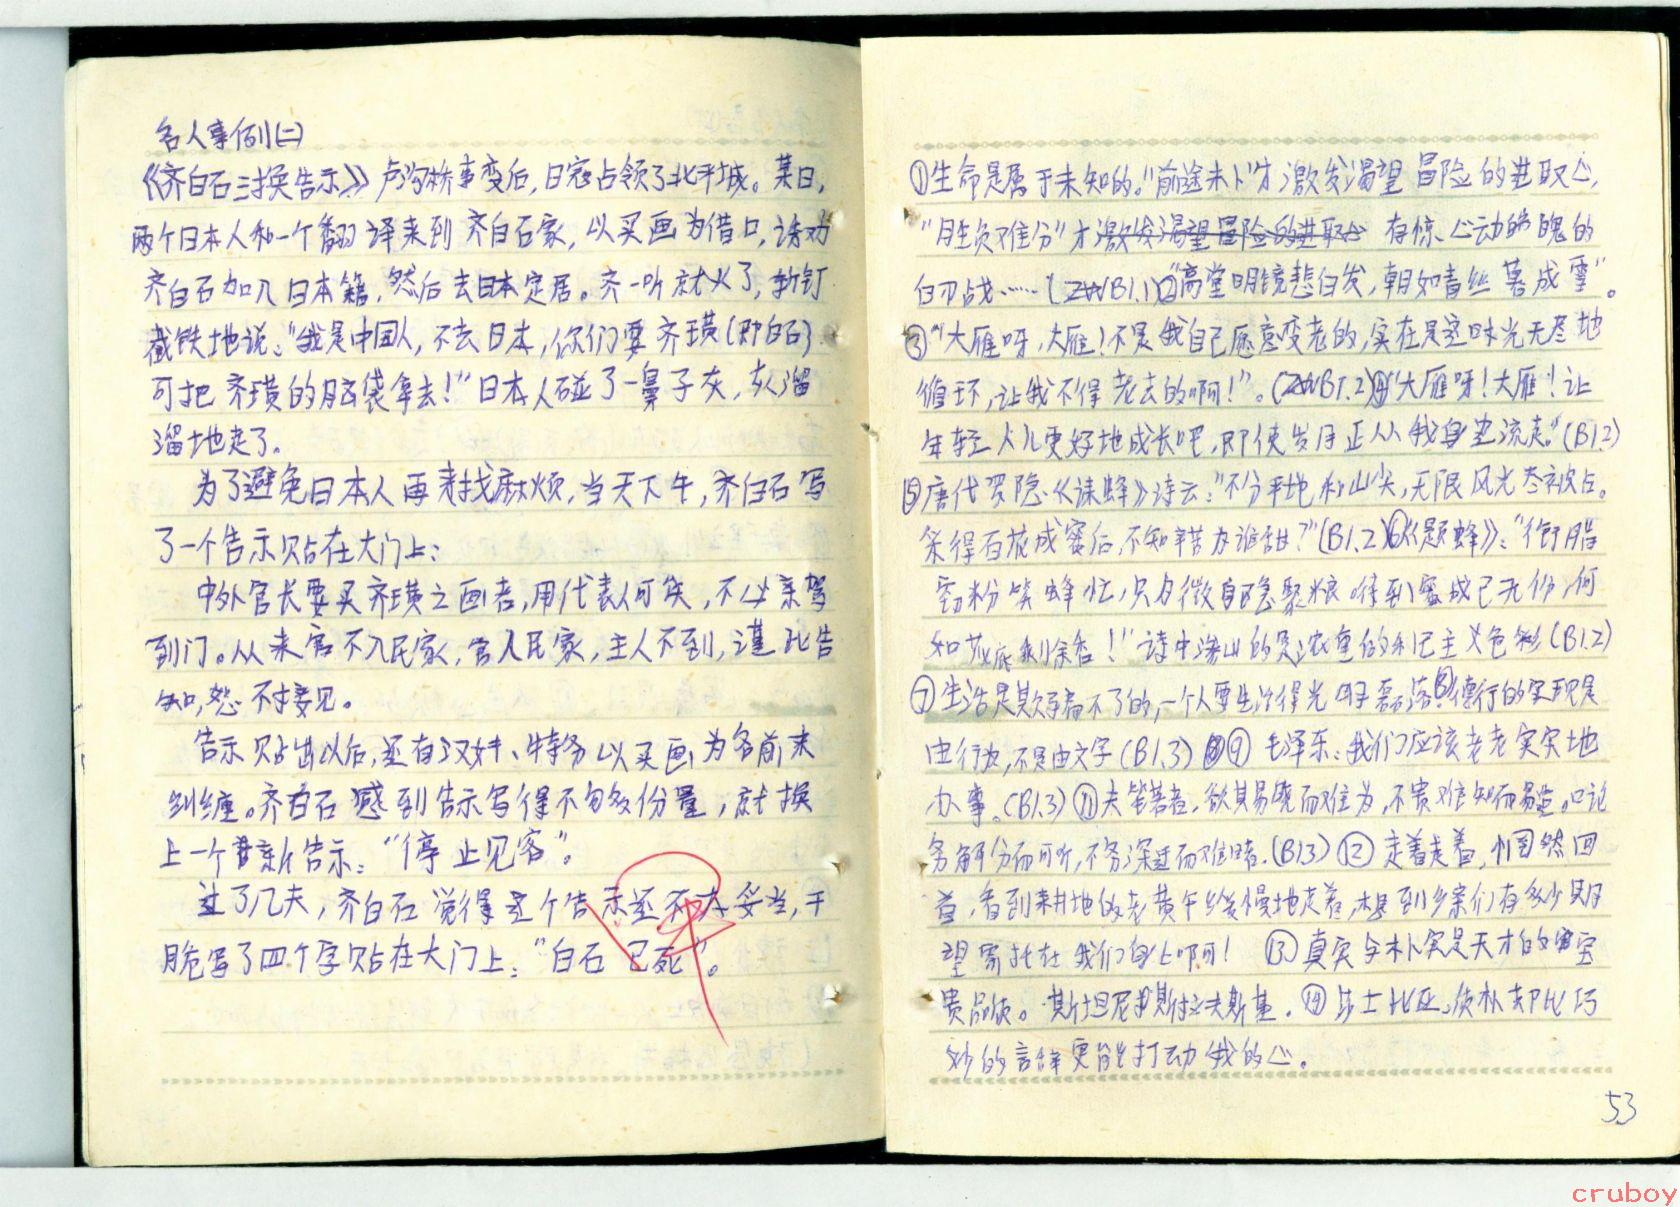 名人事例(二)
《齐白石三换告示》卢沟桥事变后,日寇占领了北平城。某日,
两个日本人和一个翻译来到齐白石家,以买画为借口,诱劝
齐白石加入日本籍,然后去日本定居。齐一听就火了,斩钉
截铁地说:“我是中国人,不去日本,你们要齐璜(即白石)
可把齐璜的脑袋拿去!”日本人碰了一鼻子灰,灰溜
溜地走了。
为了避免日本人再来找麻烦,当天下午,齐白石写
了一个告示贴在大门上:
中外官长要买齐璜之画者,用代表人可矣,不必亲驾
到门。从来官不入民家,官入民家,主人不到,谨此告
知,恕不接见。
告示贴出以后,还有汉奸、特务以买画为名前来
纠缠。齐白石感到告示写得不够份量,就换
上一个新告示:“停止见客”。
过了几天,齐白石觉得这个告示还不大妥当,干
脆写了四个字贴在大门上:“白石已死”。
①生命是属于未知的。“前途未卜”才激发渴望冒险的进取心,
“胜负难分”才激发渴望冒险的进取心 有惊心动魄的
白刃战……(ZWB1.1)②“高堂明镜悲白发,朝如青丝暮成雪”。
③“大雁呀,大雁!不是我自己愿意变老的,实在是这时光无尽地
循环,让我不得老去的啊!”。(ZWB1.2)④“大雁呀!大雁!让
年轻人儿更好地成长吧,即使岁月正从我身边流走。”(B1.2)
⑤唐代罗隐《咏蜂》诗云:“不分平地和山尖,无限风光尽被占。
采得百花成蜜后,不知辛苦为谁甜?”(B1.2)⑥《题蜂》:“衔脂
粉笑蜂忙,只为微自隐聚粮 得到蜜成已无份,何
如花底剩余香!”诗中渗出的是浓重的利己主义色彩(B1.2)
⑦生活是欺骗不了的,一个人要生活得光明磊落⑧德行的实现是
由行为,不是由文字(B1.3)⑨毛泽东:我们应该老老实实地
办事。(B1.3)⑪夫笔著者,欲其易晓而难为,不贵难知而易造。口论
务解分而可听,不务深迂而难睹。(B1.3)⑫走着走着,惘然回
首,看到耕地的老黄牛缓慢地走着,想到乡亲们有多少期
望寄托在我们身上啊! ⑬真实与朴实是天才的宝
贵品质。斯坦尼斯拉夫斯基。⑭莎士比亚:质朴却比巧
妙的言辞更能打动我的心。
53
cruboy